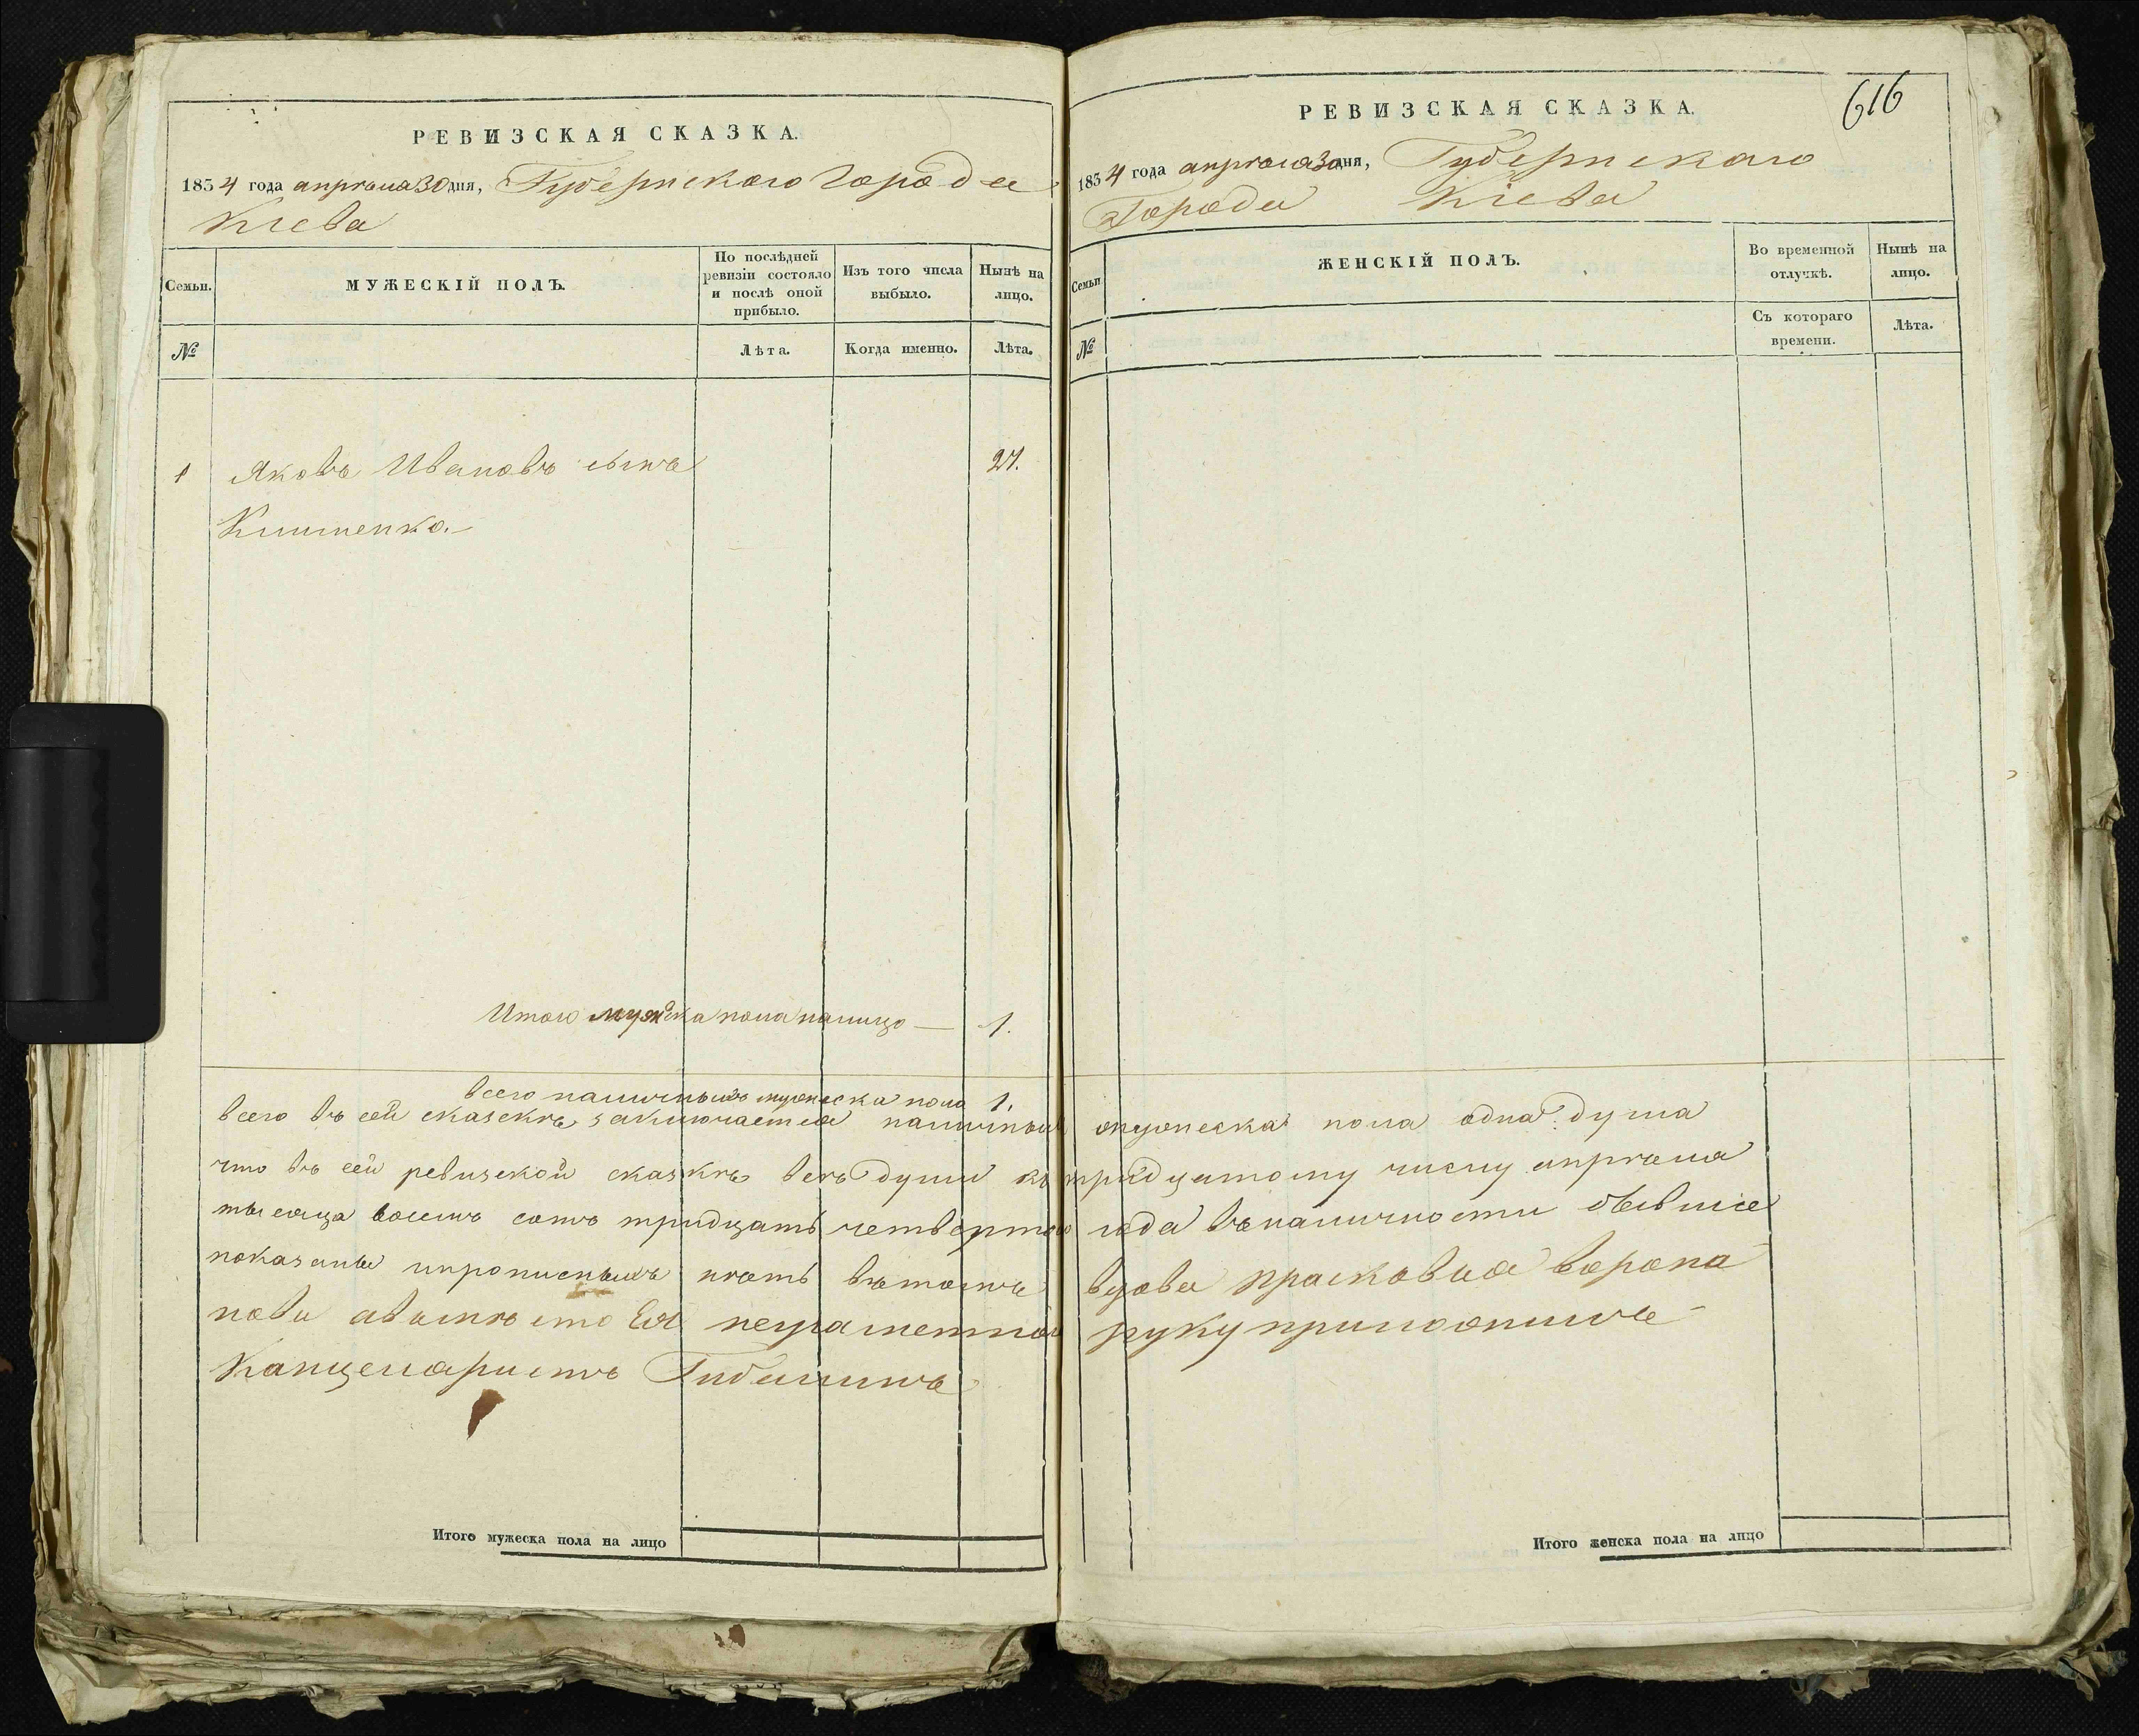 РЕВИЗСКАЯ СКАЗКА.
1834 года апрѣля 30 дня, Губернского Города
Кіева
Семьи.
МУЖЕСКІЙ ПОЛЪ.
По послѣдней ревизіи состояло и послѣ оной прибыло.
Изъ того числа выбыло.
Нынѣ на лицо.
№
Лѣта.
Когда именно.
Лѣта.
1 Яковъ Ивановъ сынъ 27.
Итого мужска пола налицо — 1.
всего наличныхъ мужеска пола 1.
всего въ сей сказскѣ заключается наличныхъ
что въ сей ревизской сказкѣ всѣ души къ
тысяща восемъ сотъ тридцать четвертого
показаны ипрописныхъ нѣтъ вътомъ
нова авмѣсто Ея неграметной
Канцеляристъ
Итого мужеска пола на лицо
616
РЕВИЗСКАЯ СКАЗКА.
1834 года апрѣля 30 дня, Губернского
Города Кіева
Семьи
ЖЕНСКІЙ ПОЛЪ.
Во временной отлучкѣ.
Нынѣ на лицо.
№
Съ котораго времени.
Лѣта.
мужеска пола одна душа
тридцатому числу апрѣля
года въналичности бывшіе
вдова Прасковья
руку приложилъ
Итого женска пола на лицо